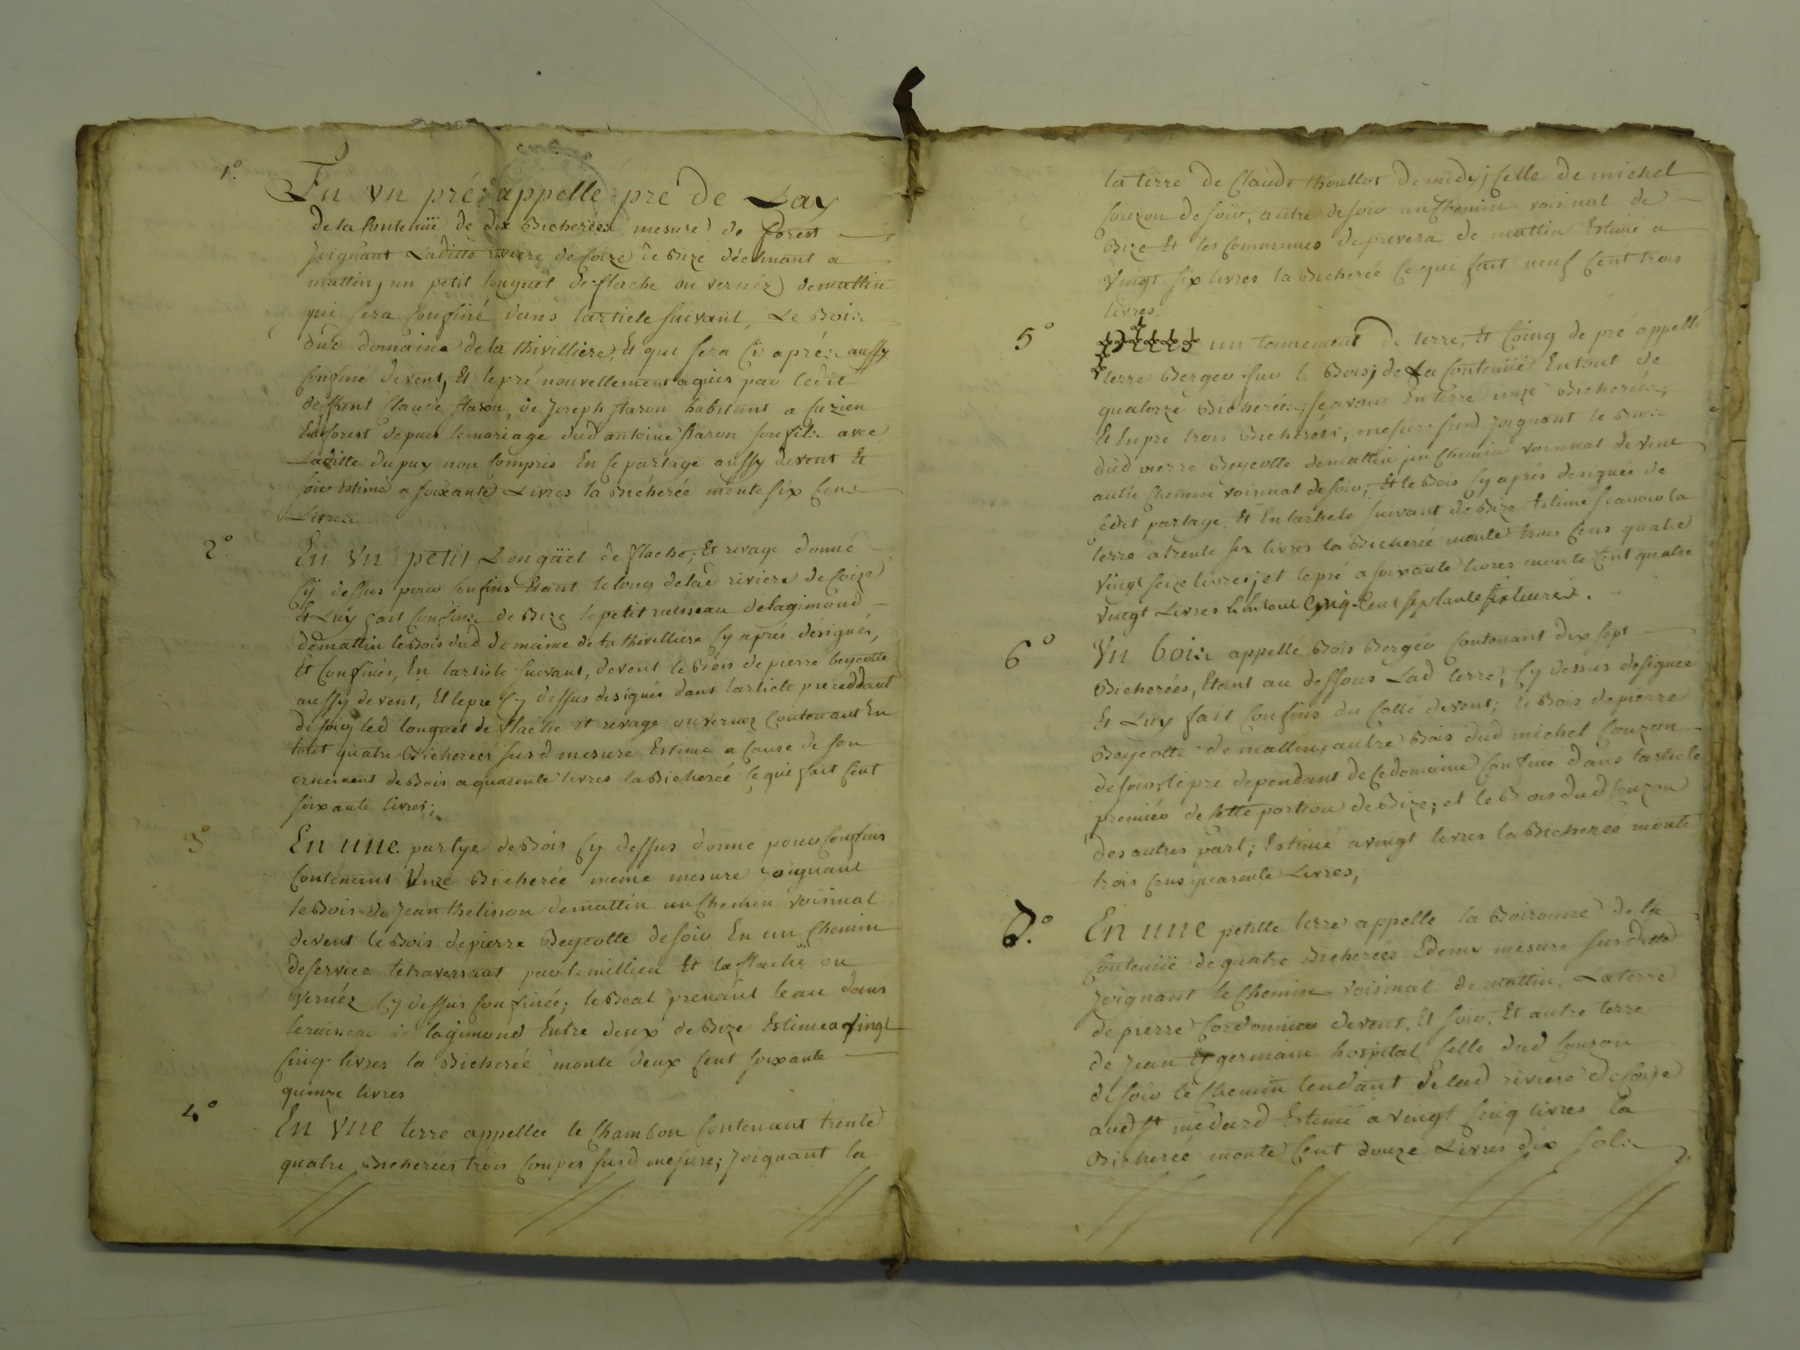 1.° En un pré appellé pré de Lay
de la Contenüe de dix Bicherées mesure de forest
Joignant Laditte riviere de Coize de Bize déclinant a
mattin, un petit longuet de flache ou vernéz demattin
qui sera Confiné dans larticle suivant, Le Bois
dud domaine de la thivilliere, Et que sera Ci aprés aussy
Confiné devent, Et le pré nouvellement aquis par ledit
deffunt Claude flaron, de Joseph flaron habitant a Cuzieu
En forest depuis le mariage dud antoine flaron son fils avec
Laditte dupuy non Compris En Ce partage aussy devent Et
soir Estimé a soixante Livres la Bicherée monte six Cens
Livres
2.° En Un petit Longüet de flache, Et rivage donné
Cy dessus pour Confins Etant le long de lad riviere de Coize
Et Luy fait Confins de Bize le petit ruisseau de lagimond
demattin le Bois dud domaine de la thivilliere Cy aprés désignés,
Et Confinés, En larticle suivant, devent le Bois de pierre beycotte
aussy devent, Et le pré Cy dessus designés dans larticle preceddant
de soir, led longuet de flache et rivage ou vernez Contenant En
tout quatre Bicherées susd mesure Estimé a Cause de son
ornement de Bois a quarente livres la Bicherée Ce qui fait Cent
soixante livres;
3° En une partye de Bois Cy dessus donné pour Confins
Contenant Unze Bicherée meme mesure Joignant
le Bois de Jean thelisson demattin un Chemin voisinal
devent le Bois de pierre Beycotte de soir En un Chemin
de service le traversant par le millieu Et la flache ou
vernéz Cy dessus Confinée; le Beal prenant leau dans
le ruisseau de lagimond Entre deux de Bize Estimé a vingt
Cinq livres la Bicherée monte deux Cent soixante
quinze livres
4° En Une terre appellée le Chambon Contenant trente
quatre Bicherées trois Coupes susd mesure; Joignant la
la terre de Claude thoullot de midy; Celle de michel
Couzon de soir, autre de soir un Chemin voisinal de
Bize Et les Communes de prevera de mattin Estimé a
Vingt six livres la Bicherée Ce que fait neuf Cent trois
livres.
5° un tennement de terre, Et Coing de pré appellé
terre Berger sur le Bois; de La Contenüe En tout de
quatorze Bicherées; scavoir En terre unze Bicherée,
Et En pré trois Bicherées, mesure susd Joignant le Bois
dud pierre Beycotte demattin un Chemin voisinal devent
autre Chemin voisinal de soir; Et le Bois Cy aprés designés de
cedit partage Et En larticle suivant de Bize Estimé scavoir la
terre a trente six livres la Bicherée monte trois Cens quatre
vingt seize livres; et le pré a soixante livres monte Cent quatre
vingt Livres En tout Cinq Cent septante six livres.
6° Un bois appellé Bois Berger Contenant dix sept
Bicherées, Etant au dessous Lad terre, Cy dessus designée
Et Luy fait Confins du Cotté devent; le Bois de pierre
Beycotte demattin, autre Bois dud michel Couzon
de soir, le pré dependant de Ce domaine Confiné dans larticle
premier de Cette portion de Bize; et le Bois dud Couzon
des autres part; Estimé a vingt livres la Bicherée monte
trois Cens quarente Livres,
7.° En une petitte terre appellé la Boironne de la
Contenüe de quatre Bicherées Edemy mesure susditte
Joignant le Chemin voisinal de mattin, La terre
de pierre Cordonnier devent, Et soir, Et autre terre
de Jean Et germain hospital Celle dud Couzon
de soir le Chemin tendant de lad riviere de Coize
aud St medard Estimé a vingt Cinq livres la
Bicherée monte Cent douze Livres dix sols